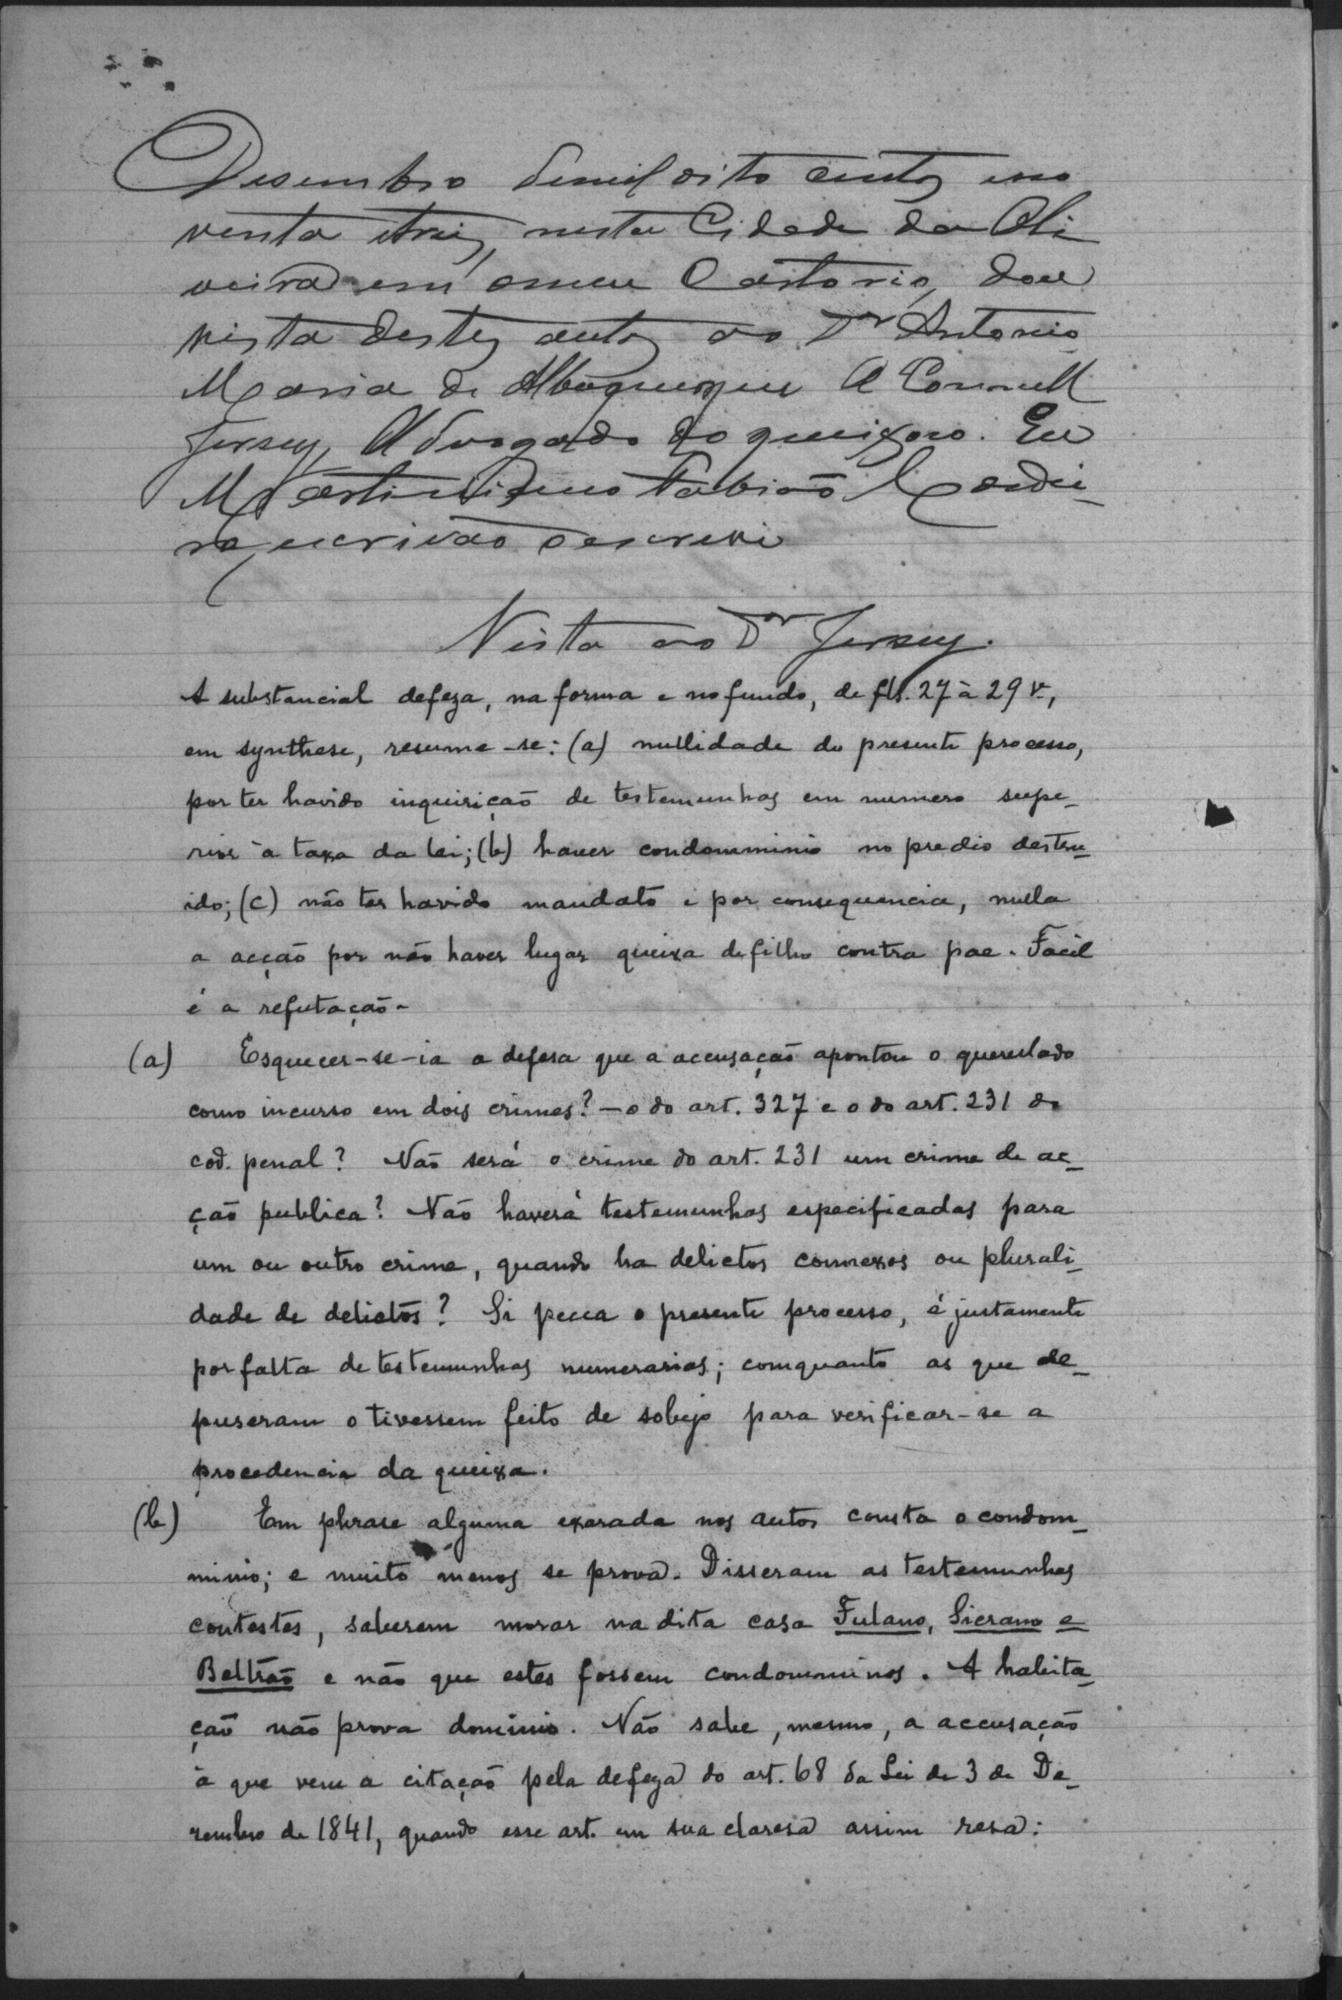 Desembro demil oito centos no
venta etrez, nesta Cidade da Oli
veira em omeu Cartorio, dou
vista destes autos ao Dr Antonio
Maria de Albuquerque O Connell
Jersey, Advogado do queixoso. Eu
Martiniano Fabiao
escrivão o escrevi
Vista ao Dr Jersey.
A substancial defeza, na forma e no fundo, de fls. 27 à 29 v.,
em synthese, resume-se: (a) nullidade do presente processo,
por ter havido inquirição de testemunhas em numero supe-
rior à taxa da lei; (b) haver condomminio no predio destru-
ido; (c) não ter havido mandato e por consequencia, nulla
a acção por não haver lugar queixa de filho contra pae. Facil
é a refutação-
(a) Esquecer-se-ia a defesa que a accusação apontou o querelado
como incurso em dois crimes? - o do art. 327 e o do art. 231 do
cod. penal? Não será o crime do art. 231 um crime de ac-
ção publica? Não haverá testemunhas especificadas para
um ou outro crime, quando ha delictos connexos ou plurali-
dade de delictos? Si pecca o presente processo, é justamente
por falta de testemunhas numerarias; comquanto as que de-
puseram o tivessem feito de sobejo para verificar-se a
procedencia da queixa.
(b) Em phrase alguma exarada nos autos consta o condom-
minio; e muito menos se prova. Disseram as testemunhas
contestes, saberem morar na dita casa Fulano, Sicrano e
Beltrão e não que estes fossem condomminos. A habita-
ção não prova dominio. Não sabe, mesmo, a accusação
à que vem a citação pela defeza do art. 68 da Lei de 3 de De-
zembro de 1841, quando esse art. em sua claresa assim resa: